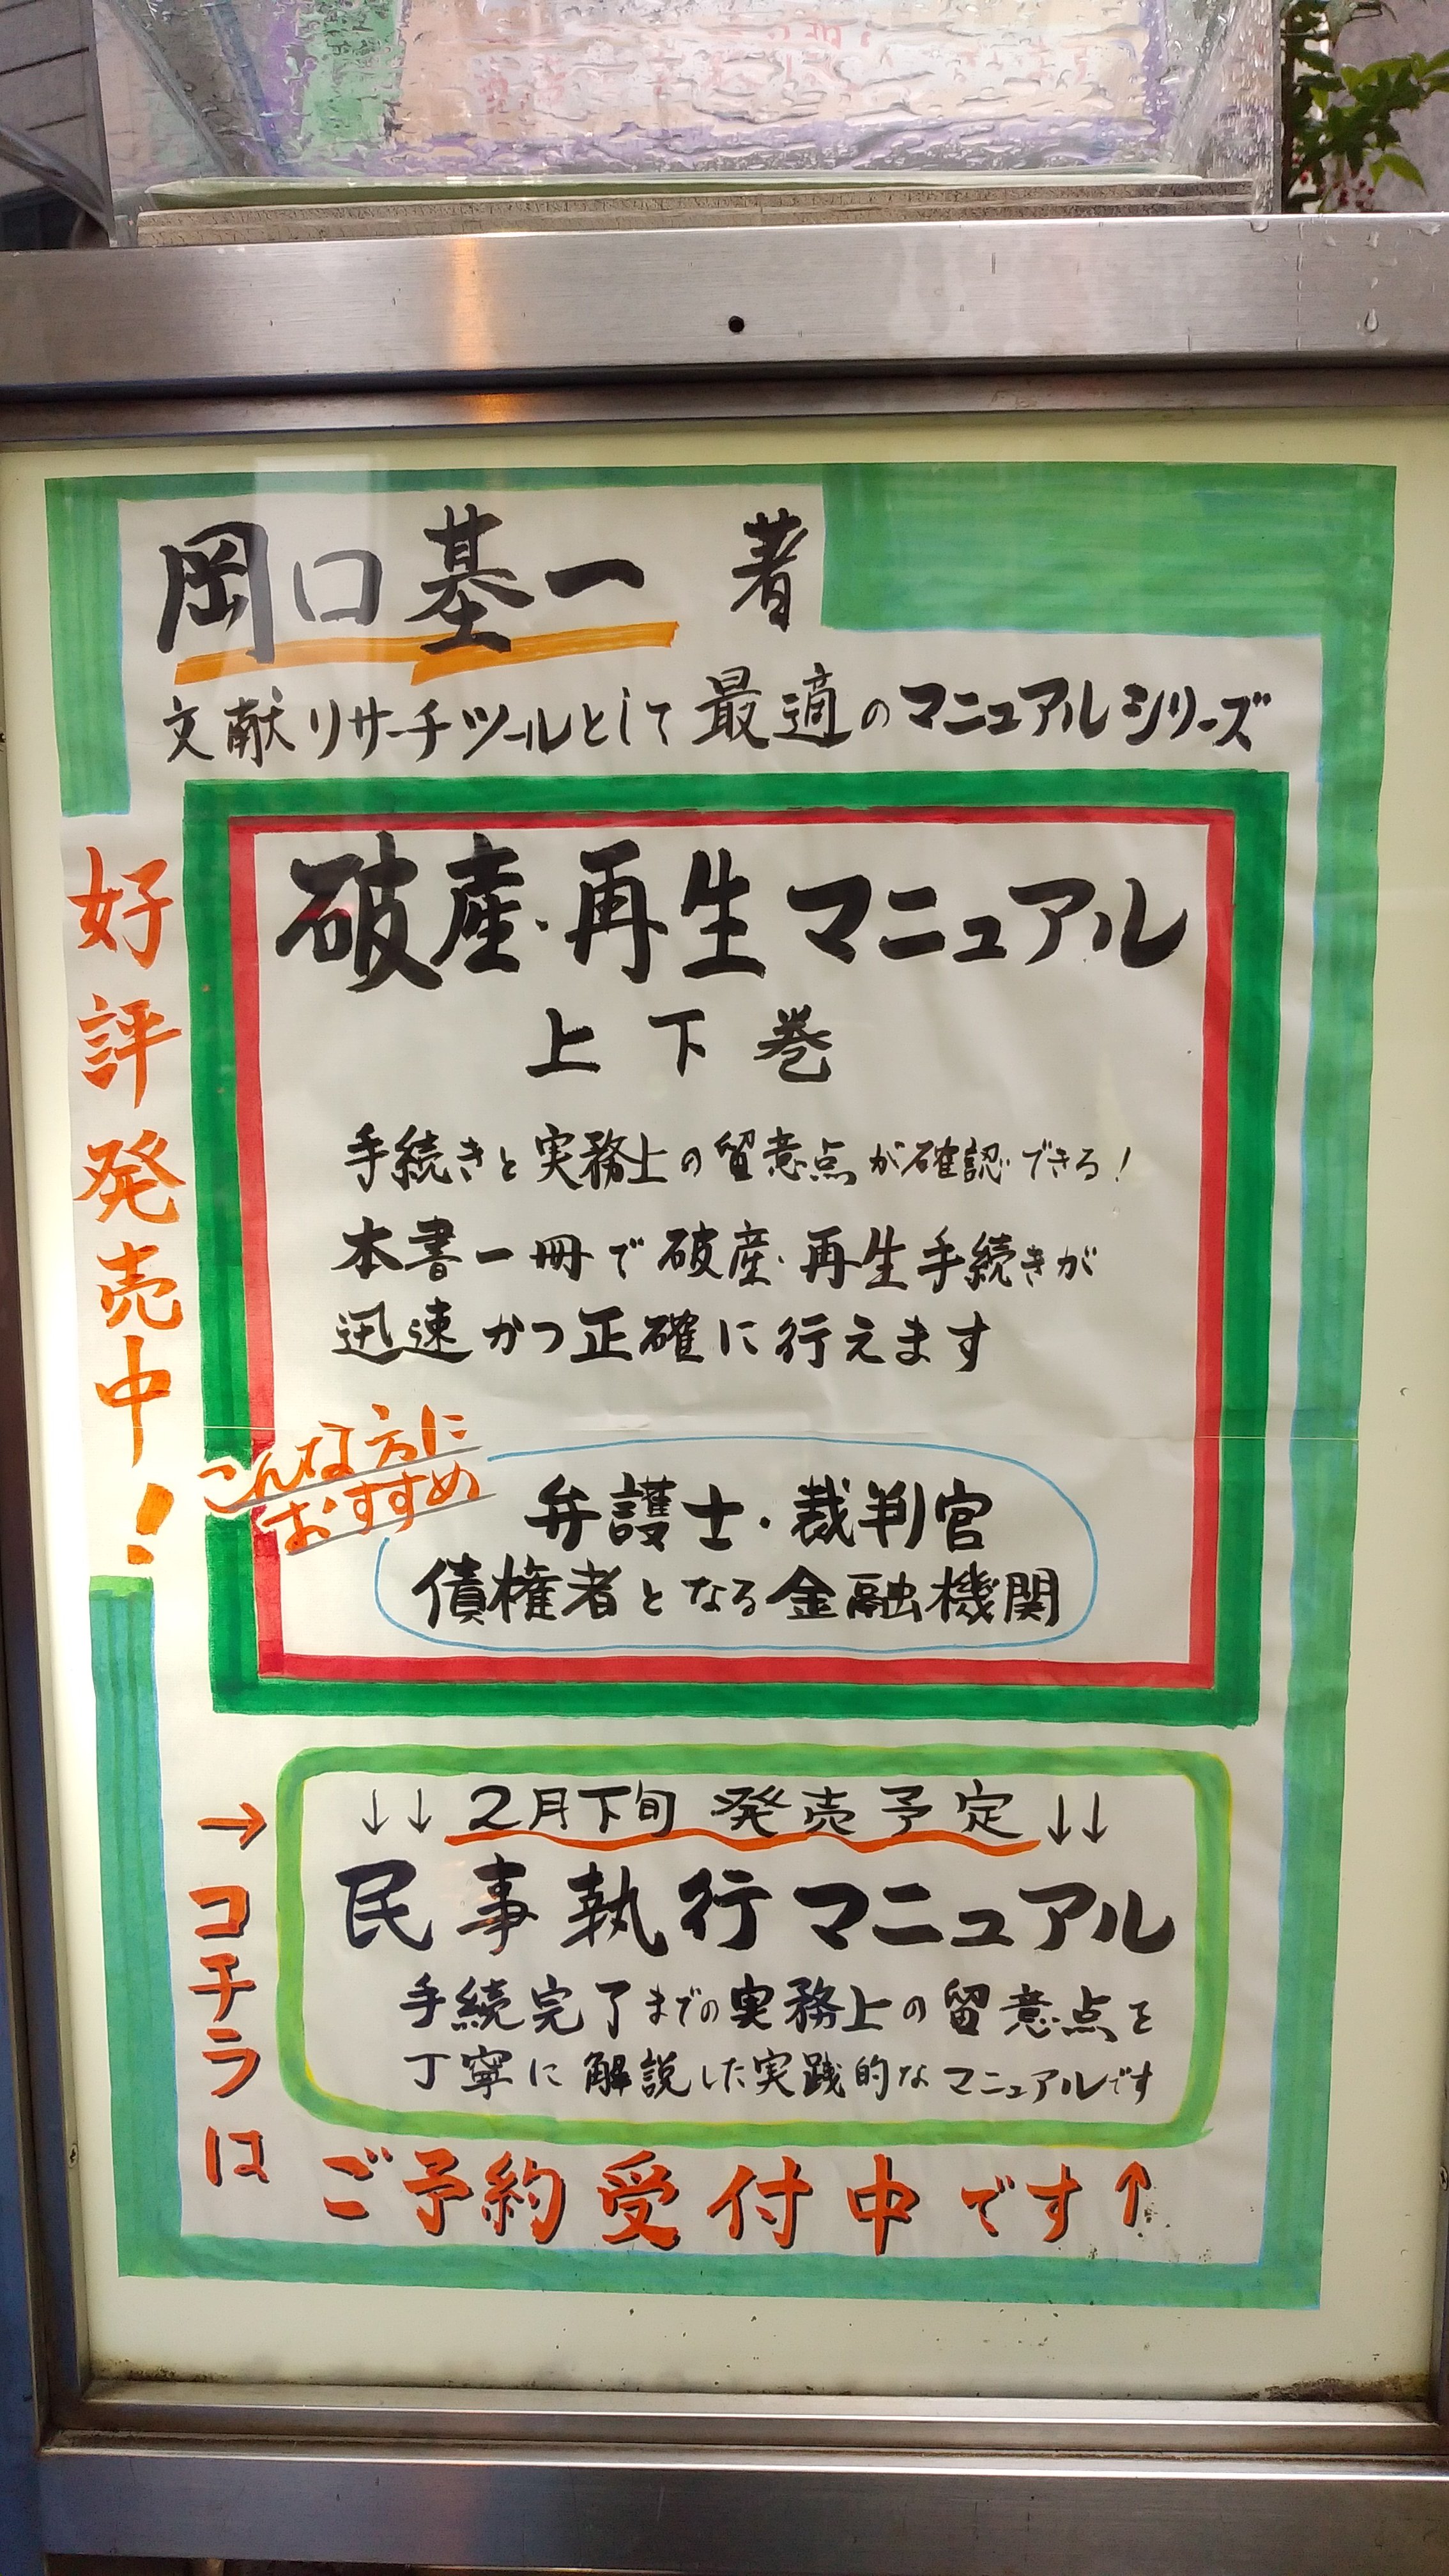 岡口基一 著
文献リサーチツールとして最適のマニュアルシリーズ
好評発売中！
破産・再生マニュアル
上下巻
手続きと実務上の留意点が確認できる！
本書一冊で破産・再生手続きが
迅速かつ正確に行えます
こんな方に
おすすめ
弁護士・裁判官
債権者となる金融機関
↓↓ 2月下旬 発売予定 ↓↓
民事執行マニュアル
手続完了までの実務上の留意点を
丁寧に解説した実践的なマニュアルです
→コチラは
ご予約受付中です↑